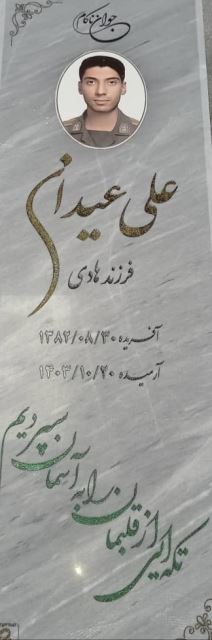 جوان ناکام
علی عیدان
فرزند هادی
آفریده ۱۳۸۲/۰۸/۳۰
آرمیده ۱۴۰۳/۱۰/۲۰
تکه ای از قلبمان را به آسمان سپردیم